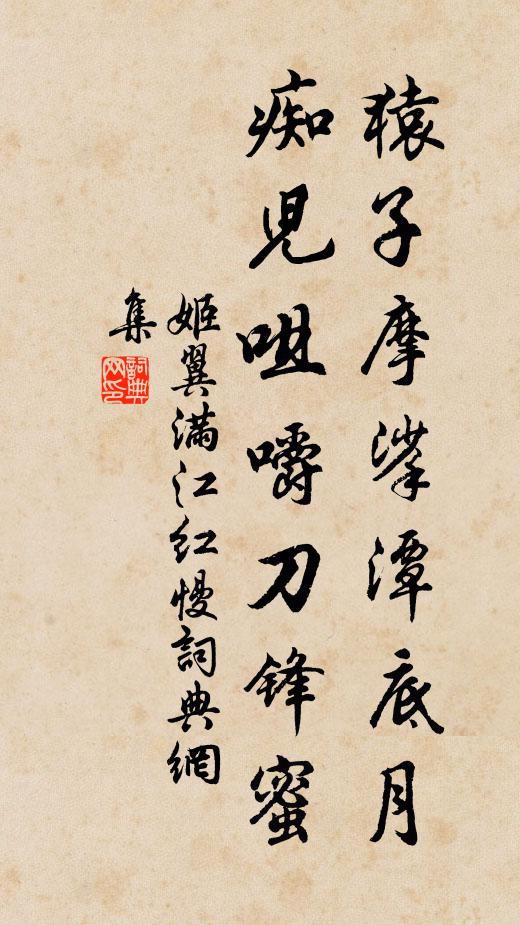 猿子摩挲潭底月
痴児咀嚼刀鋒蜜
姬翼滿江紅慢詞典網
集
詞典网印